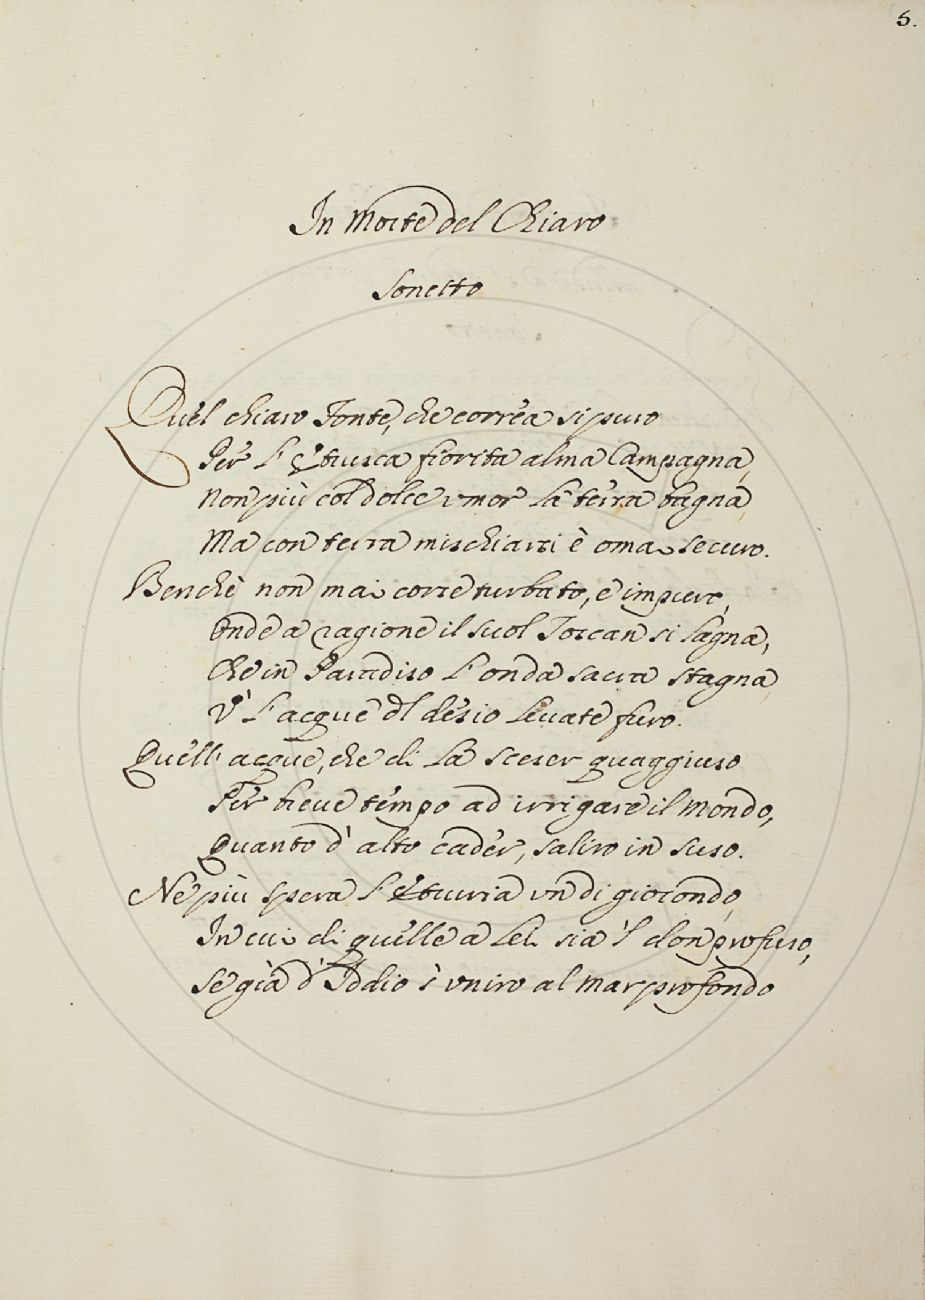 5.
In Morte del Chiaro
Sonetto
Quel chiaro Fonte, che correa si puro
Per l'Etrusca fiorita alma Campagna,
Non più col dolce vmor la terra bagna
Ma con terra mischiarsi è omai securo.
Benchè non mai corre turbato, e impuro,
Onde a ragione il suol Toscan si lagna,
Che in Paradiso l'onda sacra stagna
V' l'acque dl desio levate furo.
Quell' acque, che di là sceser quaggiuso
Per breue tempo ad irrigare il Mondo,
Quanto d' alto cader, saliro in suso.
Ne più spera l'Etruria vn di giocondo,
In cui di quelle a Lei sia 'l don profuso,
Se già d' Iddio s' vniro al mar profondo